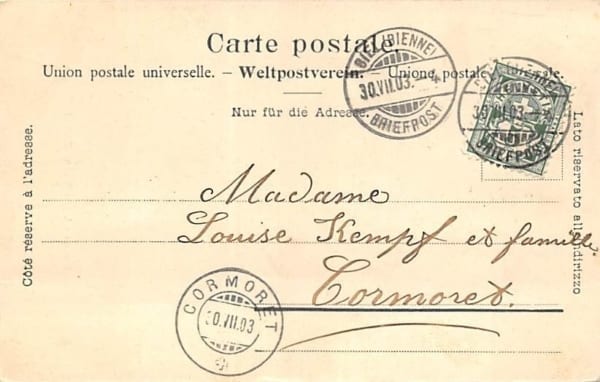 Carte postale.
Union postale universelle. – Weltpostverein. – Unione postale
Nur für die Adresse.
BIEL (BIENNE)
30.VII.03.
BRIEFPOST
(BIENNE)
30.VII.03.
BRIEFPOST
Côté réservé à l'adresse.
Lato riservato all'indirizzo
Madame
Louise Kempf et famille.
Cormoret.
CORMORET
30.VII.03